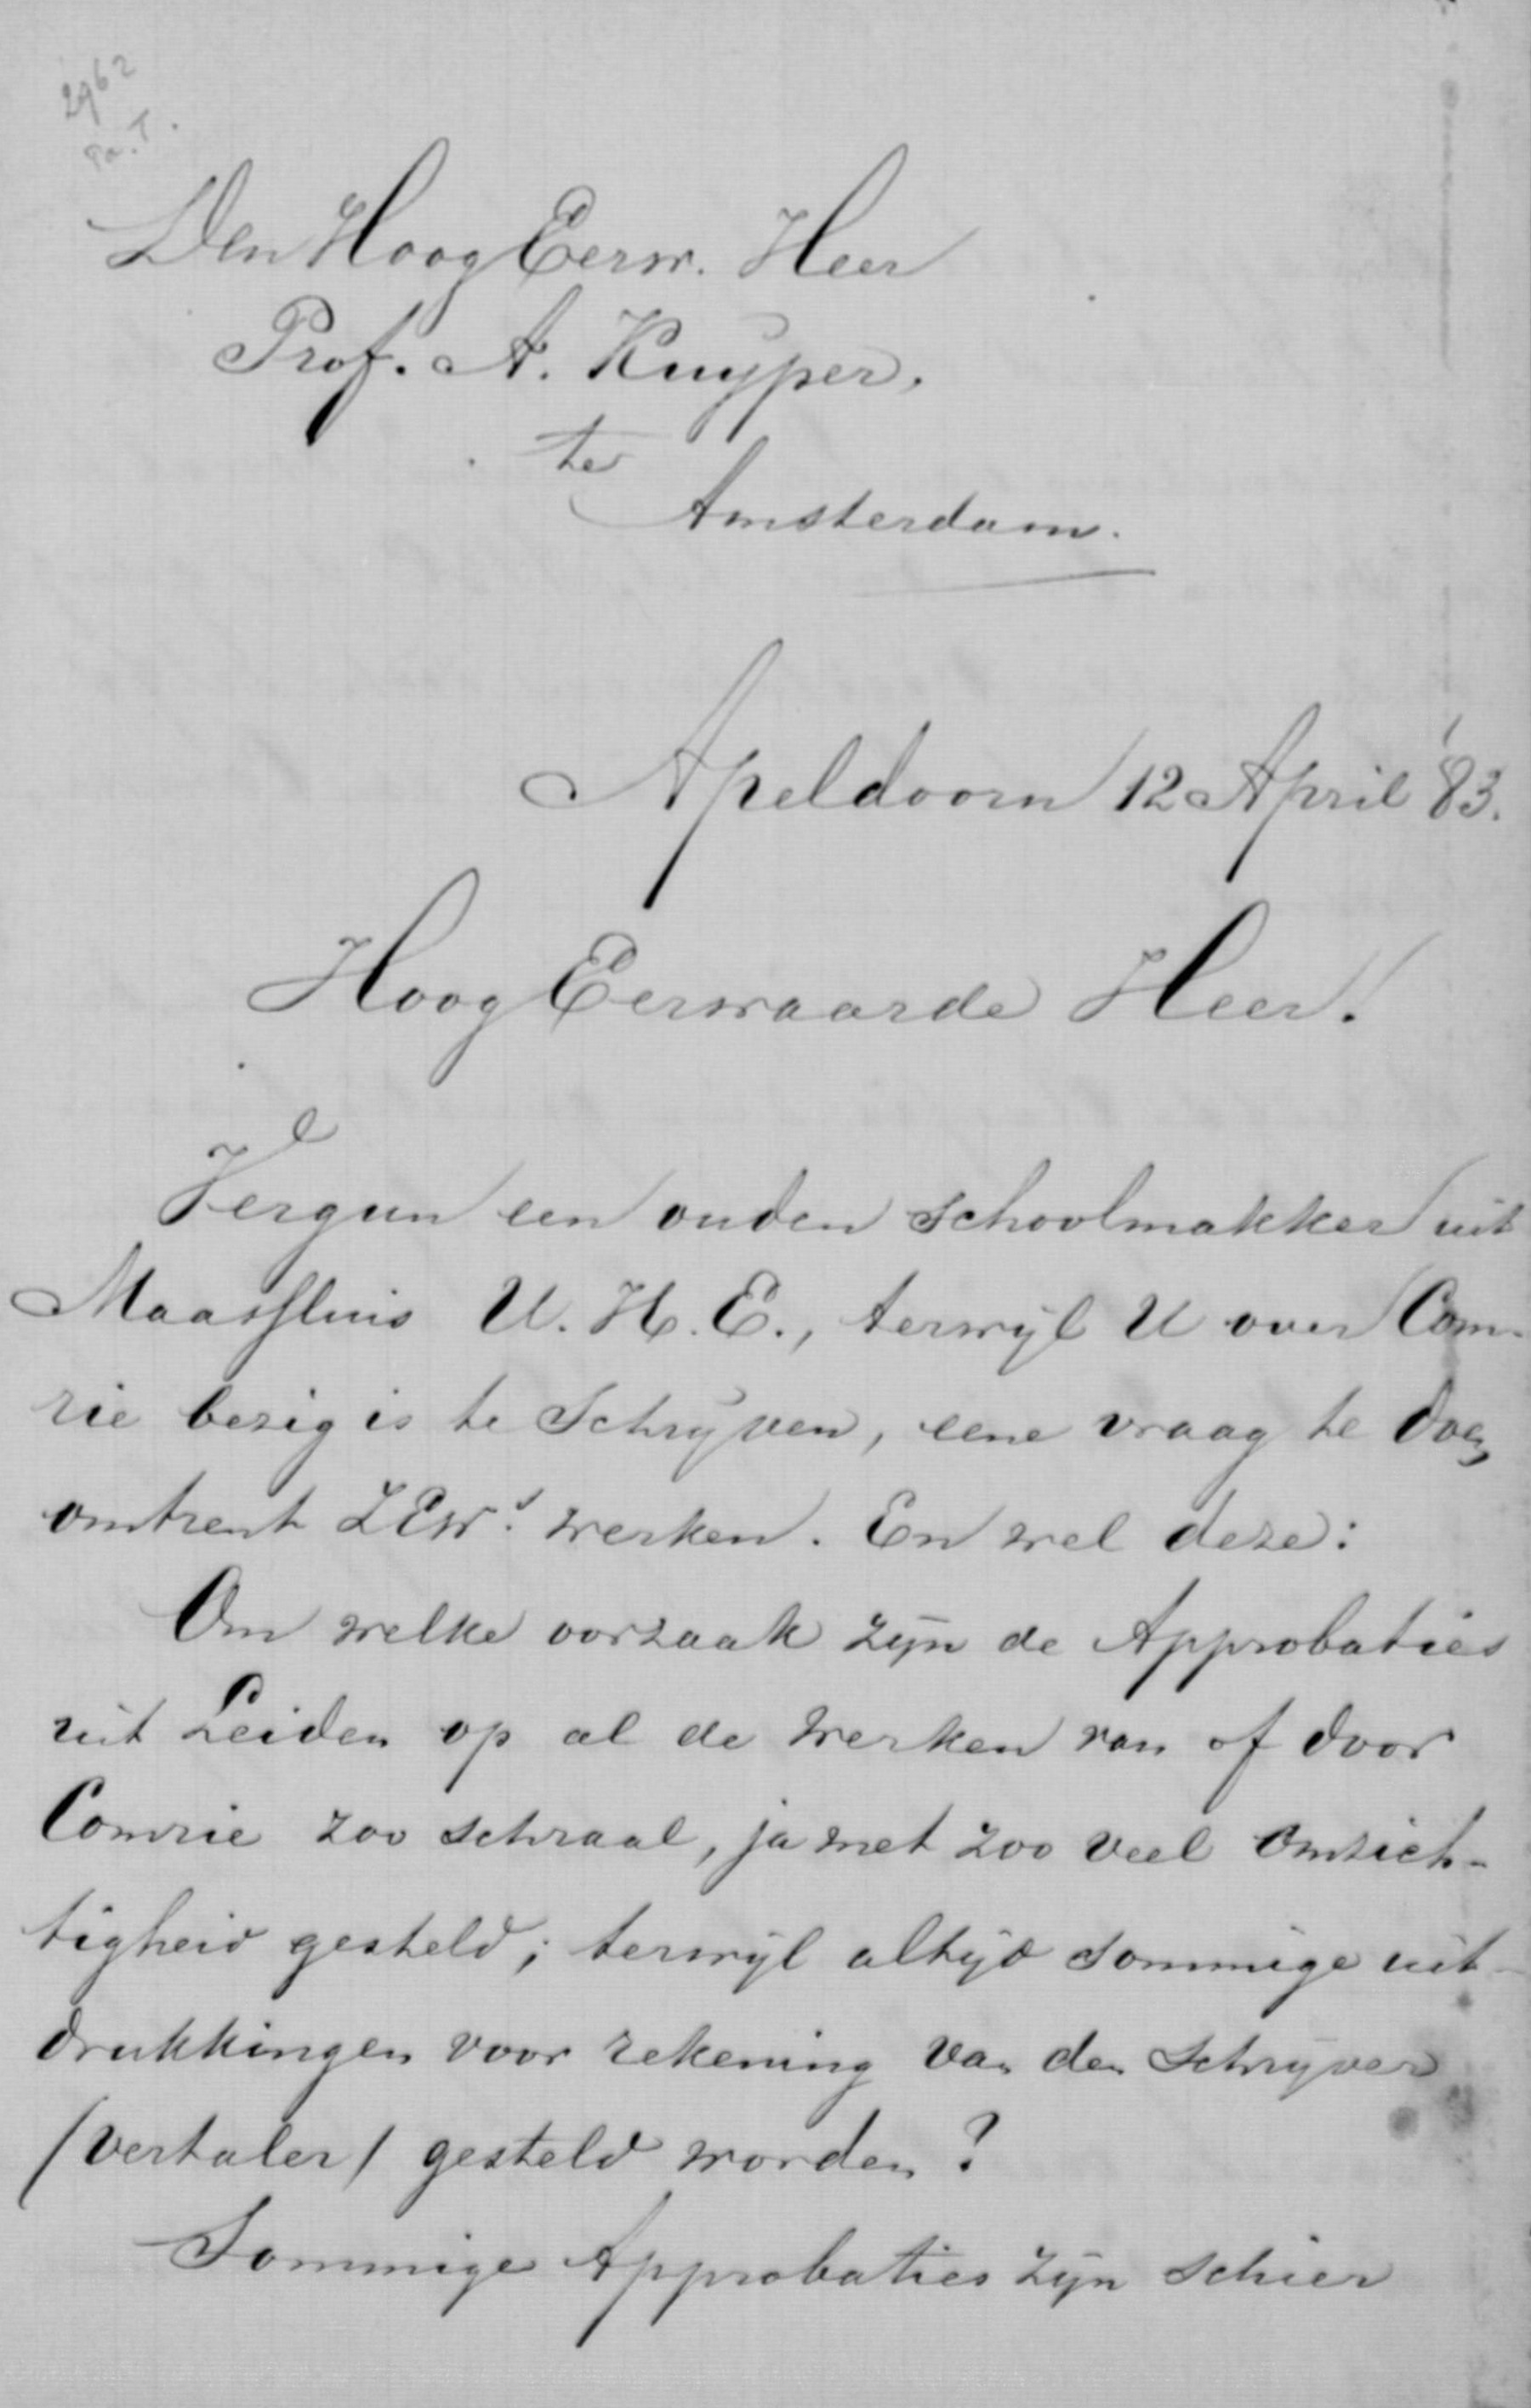 2962
Den HoogEerw. Heer
Prof. A. Kuyper,
te
Amsterdam.
Apeldoorn 12 April '83.
HoogEerwaarde Heer!
Vergun een ouden schoolmakker uit
Maassluis U. H. E., terwyl U over Com-
rie bezig is te schryven, eene vraag te doen
omtrent ZEw.s werken. En wel deze:
Om welke oorzaak zyn de Approbaties
uit Leiden op al de werken van of door
Comrie zoo schraal, ja met zoo veel omzich-
tigheid gesteld; terwyl altyd sommige uit-
drukkingen voor rekening van den Schryver
/vertaler/ gesteld worden?
Sommige Approbaties zyn schier